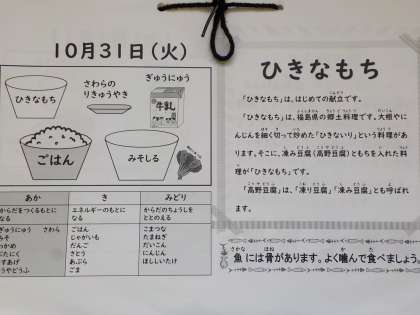 10月31日（火）
ひきなもち
さわらの
りきゅうやき
ぎゅうにゅう
牛乳
ごはん
みそしる
あか
き
みどり
からだをつくるもとに
なる
エネルギーのもとに
なる
からだのちょうしを
ととのえる
ぎゅうにゅう さわら
みそ
わかめ
にく
うすあげ
ごはん
じゃがいも
だんご
さとう
あぶら
ごま
こまつな
たまねぎ
だいこん
にんじん
ほししいたけ
ひきなもち
「ひきなもち」は、はじめての献立です。
「ひきなもち」は、福島県の郷土料理です。大根やに
んじんを細く切って炒めた「ひきないり」という料理があ
ります。そこに、凍み豆腐（高野豆腐）ともちを入れた料
理が「ひきなもち」です。
「高野豆腐」は、「凍り豆腐」「凍み豆腐」とも呼ばれ
ます。
魚には骨があります。よく噛んで食べましょう。